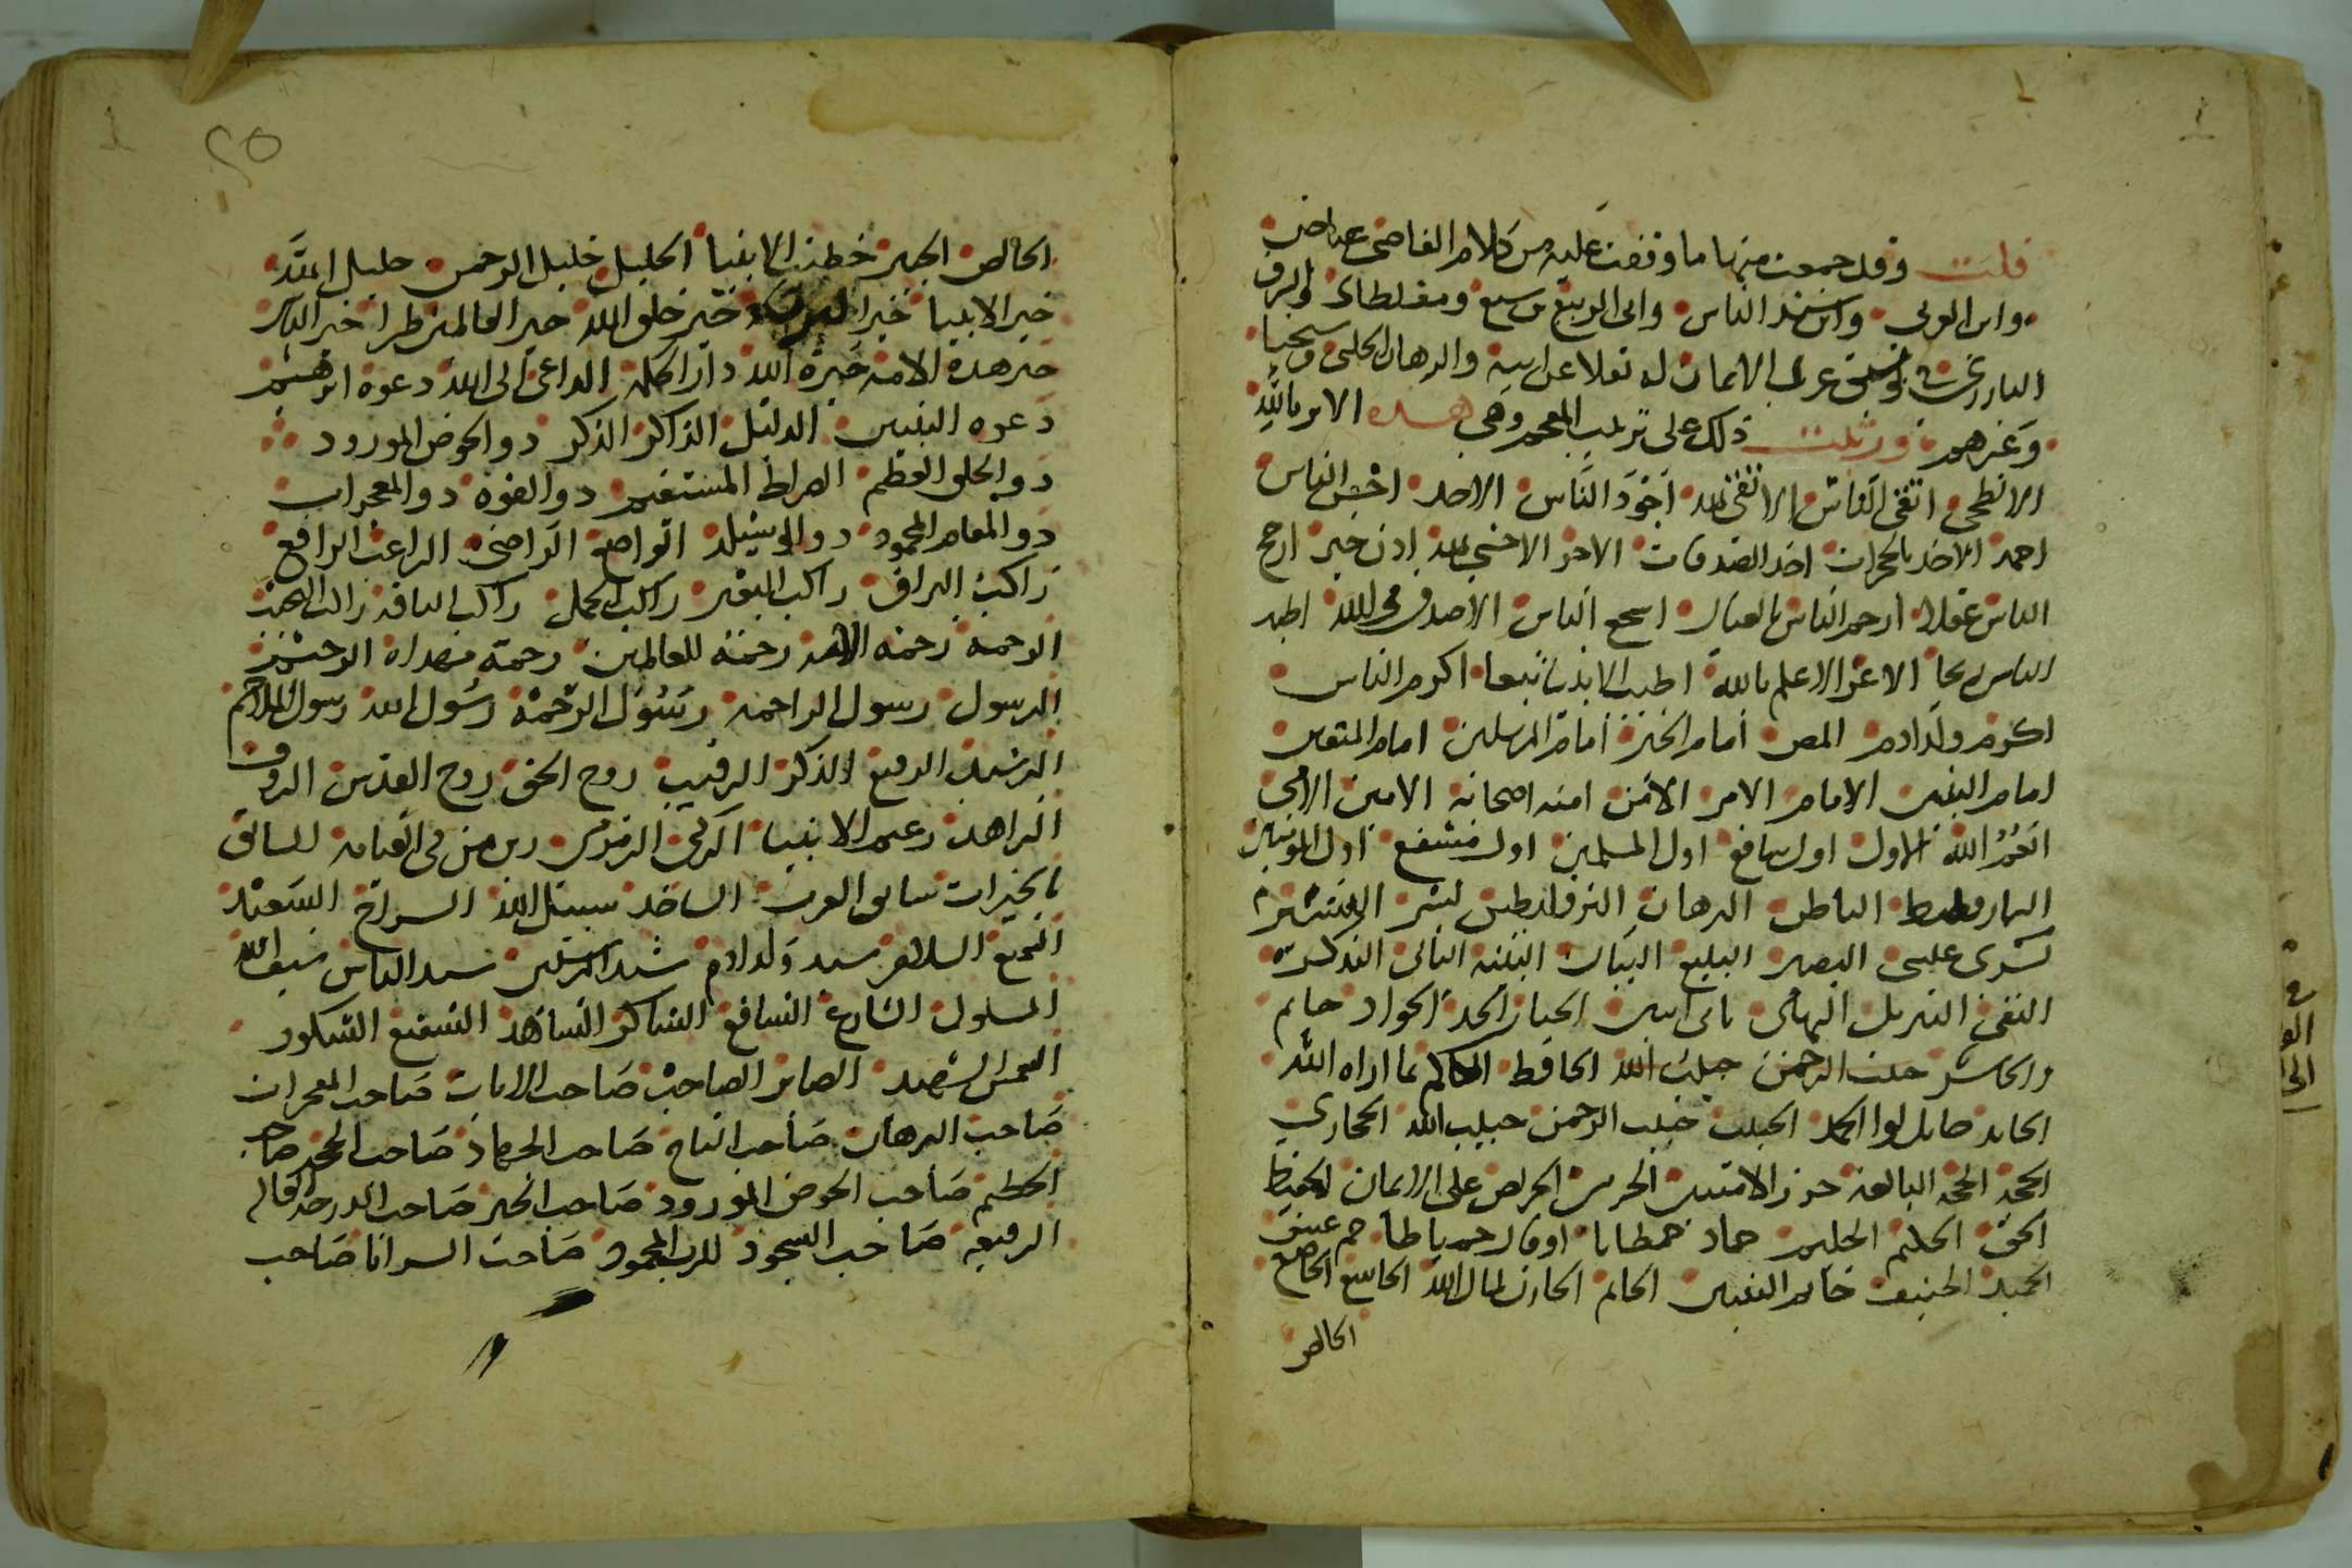 قلت وقد جمعت منها ما وقفت عليه من كلام القاضي عياض
وابن العربي وابن سيد الناس وابي الربيع بن سبع ومغلطاي والشرف
البارزي في توثيق عرى الايمان له نقلا عن ابيه والبرهان الحلبي وشيخنا
وغيرهم ورتبت ذلك على ترتيب المعجم وهي هذه الابر بالله
الابطحي اتقى الناس الاتقى لله اجود الناس الاحد احسن الناس
احمد الاخذ بالحجزات اخذ الصدقات الاخر الاخشى لله اذن خير ارجح
الناس عقلا ارحم الناس بالعيال اشجع الناس الاصدق في الله اطيب
الناس ريحا الاعز الاعلم بالله اكثر الانبيا تبعا اكرم الناس
اكرم ولد ادم المص امام الخير امام المرسلين امام المتقين
امام النبيين الامام الامر الامن امنة اصحابه الامين الامي
انعم الله الاول اول شافع اول المسلمين اول مشفع اول المومنين
البارقليط الباطن البرهان البرقليطس بشر البشير
بشرى عيسى البصير البليغ البيان البينة التالي التذكرة
التقي التنزيل التهامي ثاني اثنين الجبار الجد الجواد حاتم
والحاشر حبيب الرحمن حبيب الله الحافظ الحاكم بما اراه الله
الحامد حامل لوا الحمد الحبيب حبيب الرحمن حبيب الله الحجازي
الحجة الحجة البالغة حرز الاميين الحرمي الحريص على الايمان الحفيظ
الحق الحكيم الحليم حماد حمطايا او قال حمياطا حم عسق
الحميد الحنيف خاتم النبيين الخاتم الخازن لمال الله الخاشع الخاضع
الخالص
٢٥
الخالص الخبير خطيب الانبيا الخليل خليل الرحمن خليل الله
خير الانبيا خير البرية خير خلق الله خير العالمين طرا خير الناس
خير هذه الامة خيرة الله دار الحكمة الداعي الى الله دعوة ابرهيم
دعوة النبيين الدليل الذاكر الذكر ذو الحوض المورود
ذو الخلق العظيم الصراط المستقيم ذو القوة ذو المعجزات
ذو المقام المحمود ذو الوسيلة الراضع الراضي الراغب الرافع
راكب البراق راكب البعير راكب الجمل راكب الناقة راكب النجيب
الرحمة رحمة الامة رحمة للعالمين رحمة مهداة الرحيم
الرسول رسول الراحة رسول الرحمة رسول الله رسول الملاحم
الرشيد الرفيع الذكر الرقيب روح الحق روح القدس الروف
الزاهد زعيم الانبيا الزكي الزمزمي زين من في القيامة السابق
بالخيرات سابق العرب الساجد سبيل الله السراج السعيد
السميع السلام سيد ولد ادم سيد المرسلين سيد الناس سيف الله
المسلول الشارع الشافع الشاكر الشاهد الشفيع الشكور
الشمس الشهيد الصابر الصاحب صاحب الايات صاحب المعجزات
صاحب البرهان صاحب التاج صاحب الجهاد صاحب الحجة صاحب
الحطيم صاحب الحوض المورود صاحب الخير صاحب الدرجة العالية
الرفيعة صاحب السجود للرب المحمود صاحب السرايا صاحب